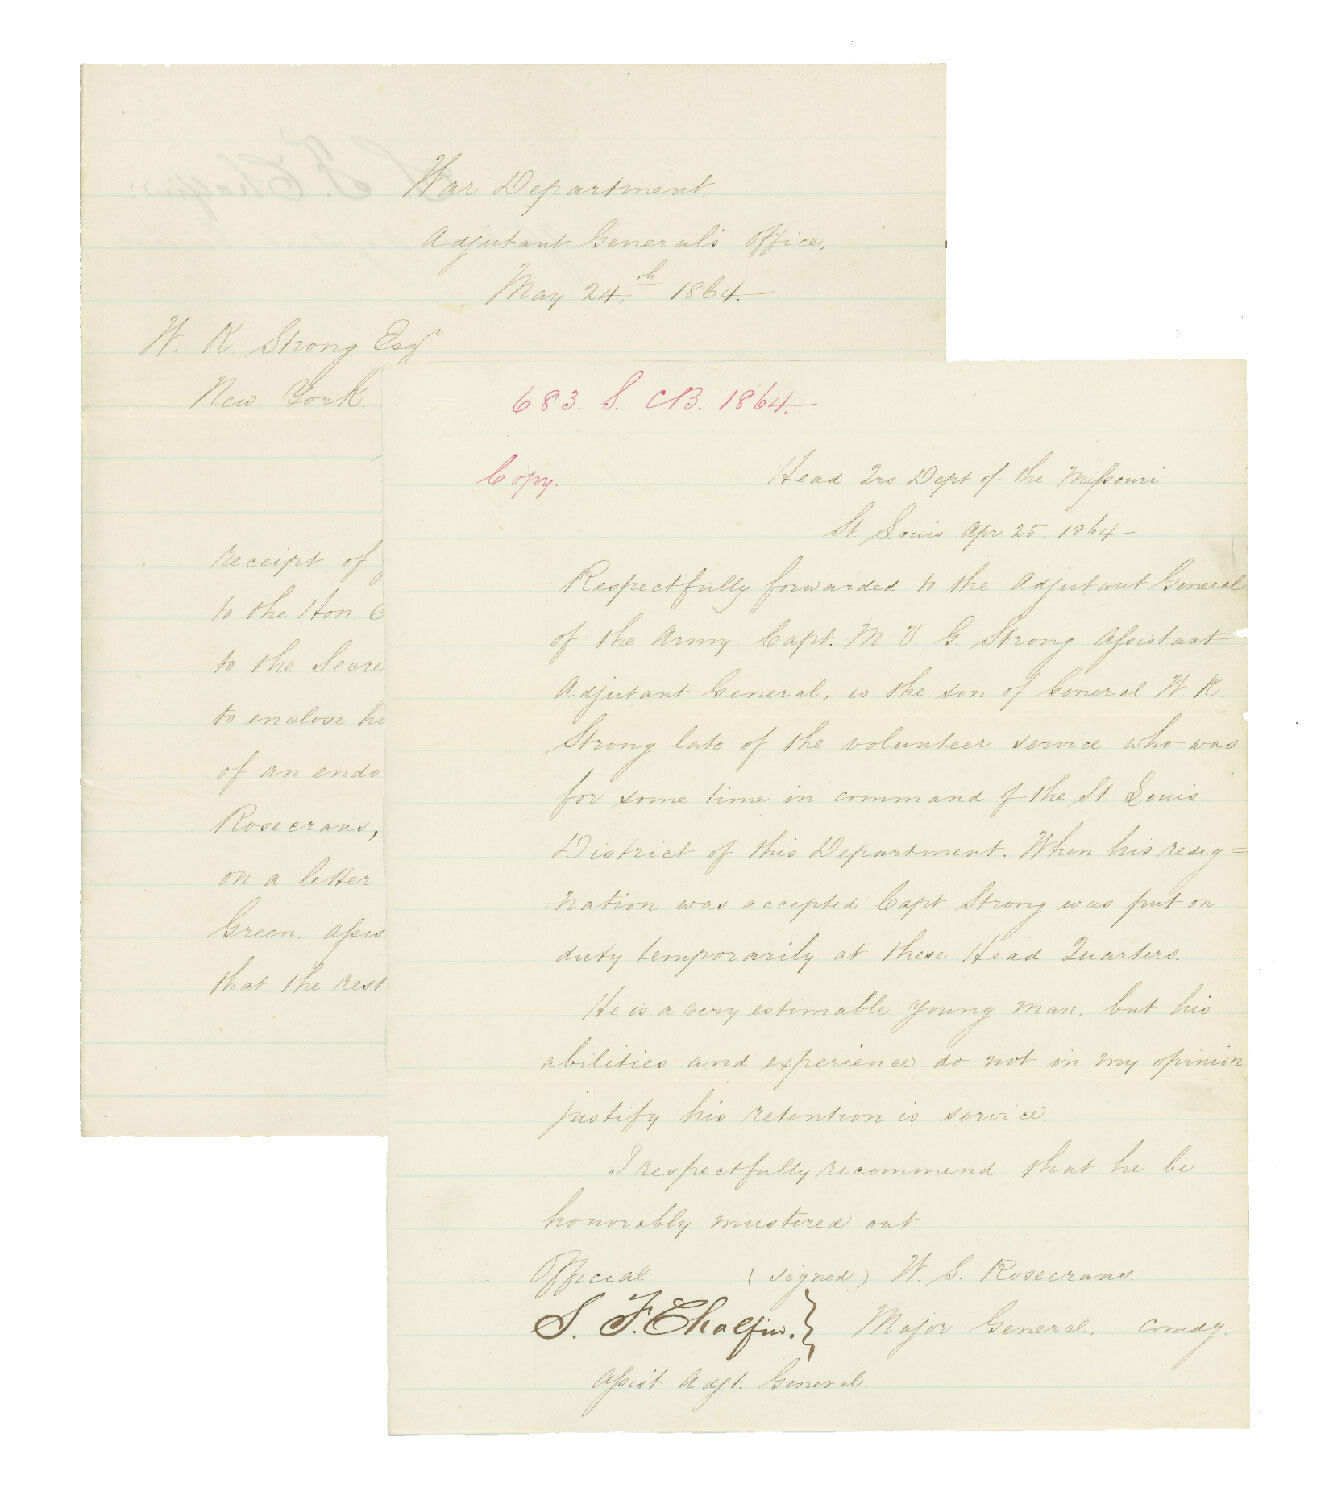 War Department.
Adjutant General's Office,
May 24th 1864.
W. K. Strong Esqr
New York.
receipt of
to the Hon
to the Secre
to enclose he
of an endo
Rosecrans,
on a letter
Green. Assis
that the rest
683. S. CB. 1864.
Copy.
Head Qrs Dept of the Missouri
St. Louis Apr 25. 1864
Respectfully forwarded to the Adjutant General
of the Army. Capt. M. V. G. Strong Assistant
Adjutant General, is the son of General W K
Strong late of the volunteer service who was
for some time in command of the St Louis
District of this Department. When his resig=
nation was accepted Capt Strong was put on
duty temporarily at these Head Quarters.
He is a very estimable young man, but his
abilities and experience do not in my opinion
justify his retention is service.
I respectfully recommend that he be
honorably mustered out
Official (signed) W. S. Rosecrans
S. F. Chalfin. } Major General. Comdg.
Assist Adjt. General